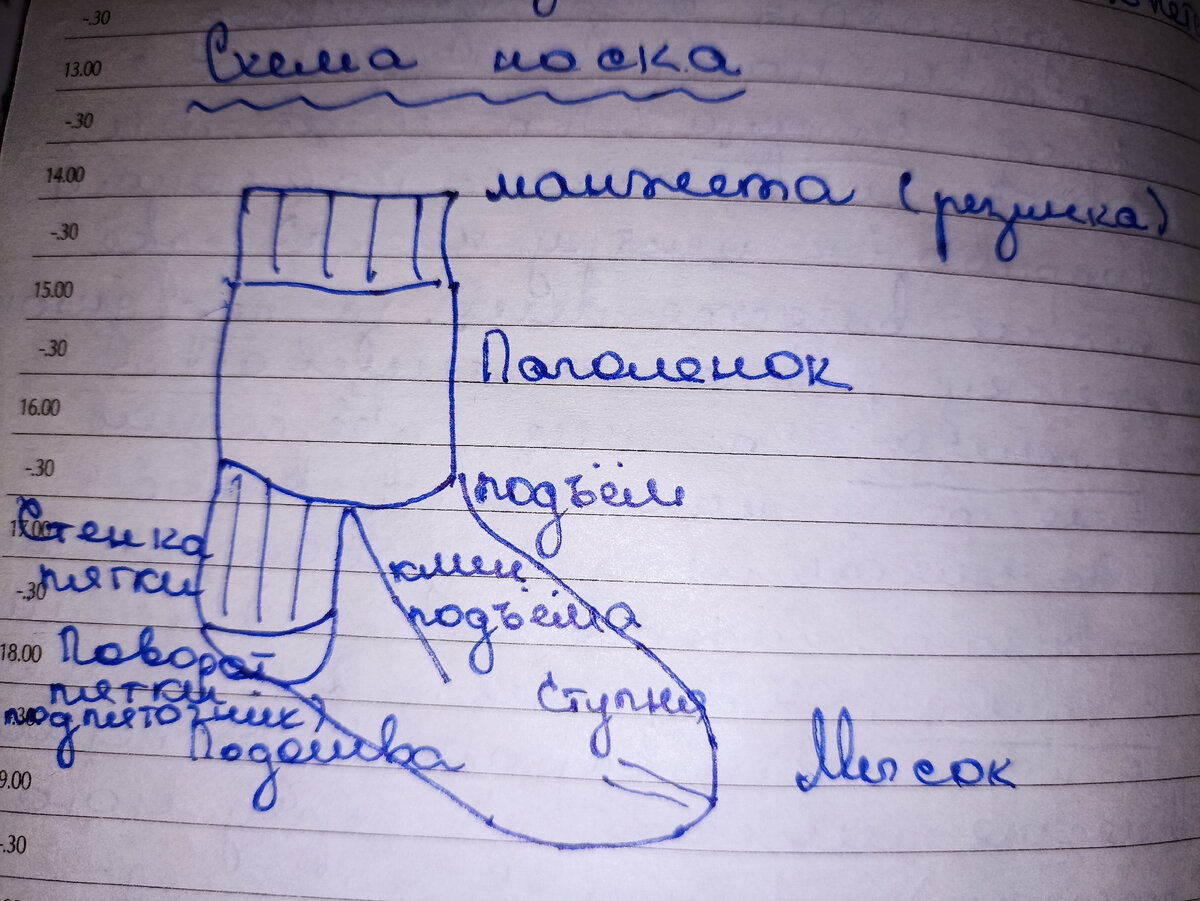 -.30
13.00
Схема носка
-.30
14.00
манжета (резинка)
-.30
15.00
-.30
Паголенок
16.00
-.30
подъём
17.00
Стенка
пятки
клин
подъёма
-.30
18.00
Поворот
пятки
подпяточник)
Ступня
Подошва
Мысок
9.00
-.30